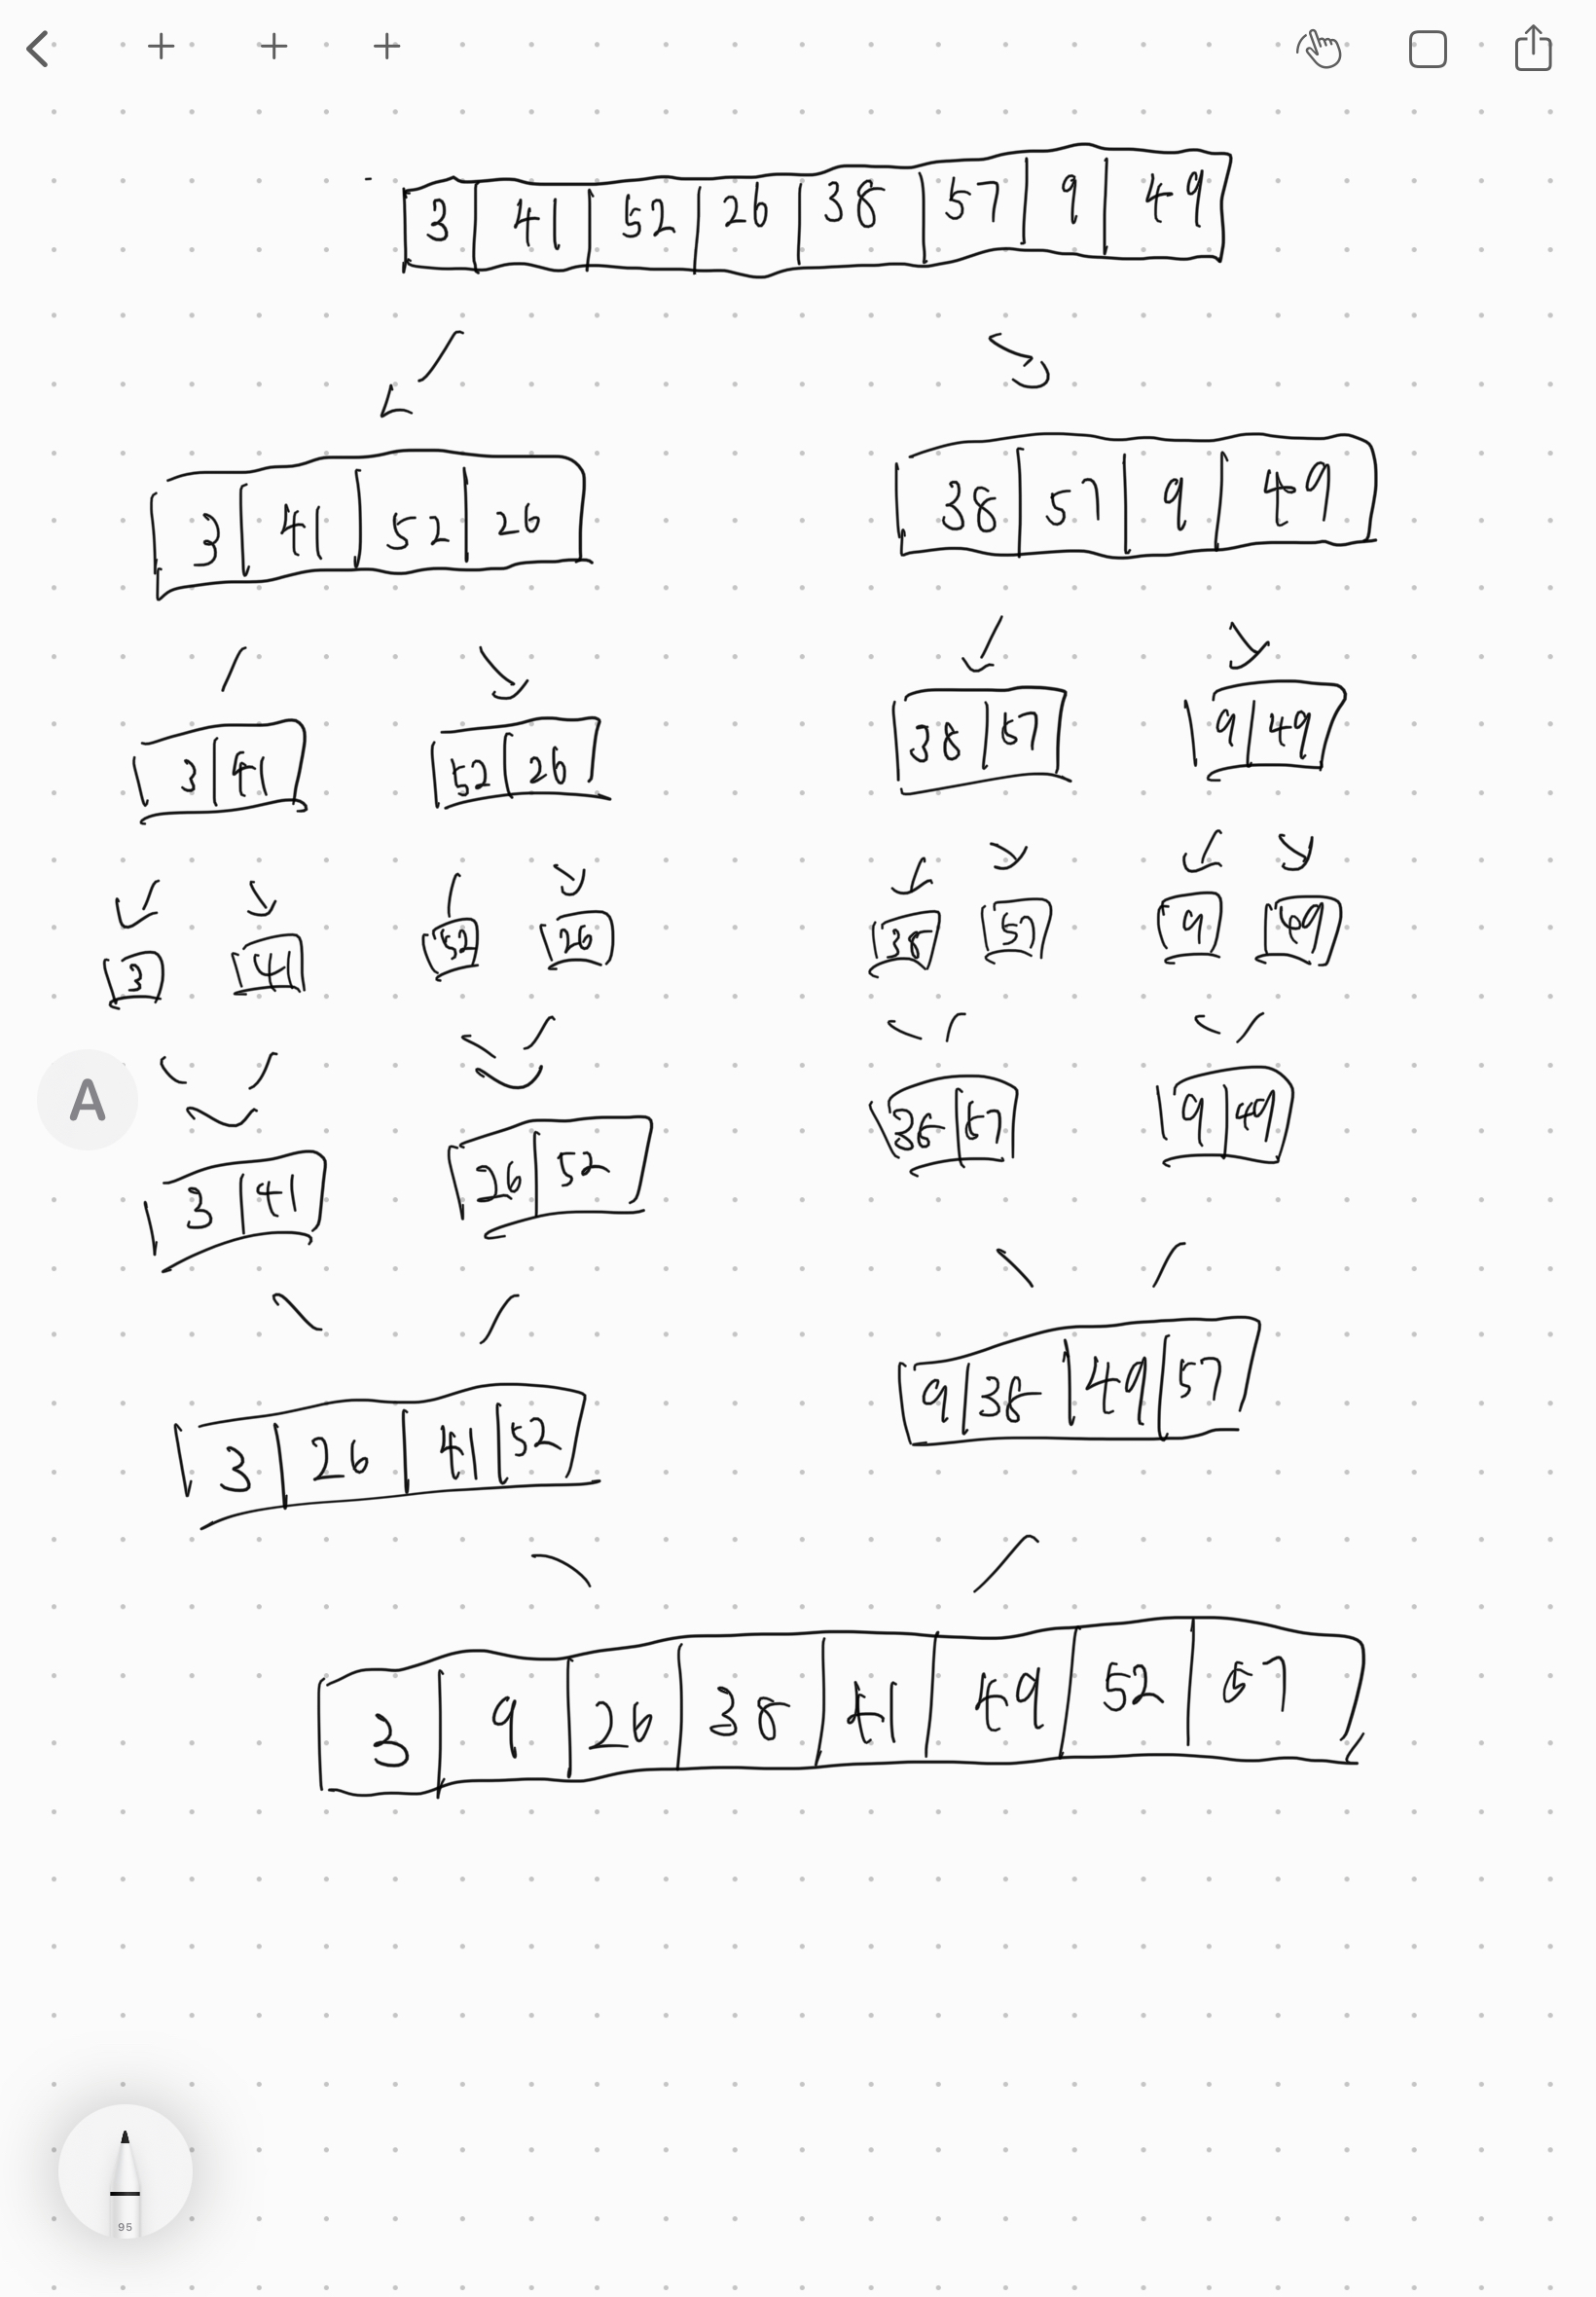 3 41 52 26 38 57 9 49
3 41 52 26 38 57 9 49
3 41 52 26 38 57 9 49
3 41 52 26 38 57 9 49
A
3 41 26 52 38 57 9 49
3 26 41 52 9 38 49 57
3 9 26 38 41 49 52 57
95